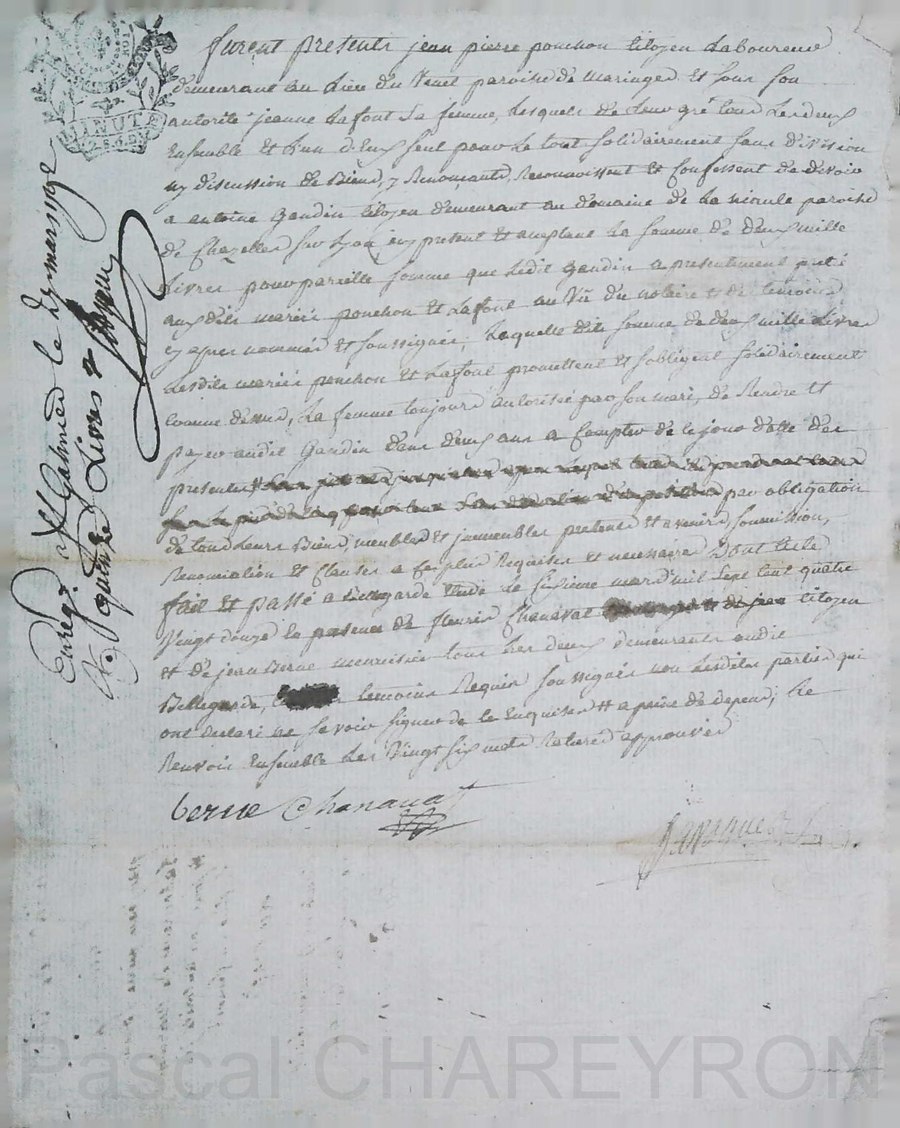 MINUTE
furent presents jean pierre ponchon Citoyen Laboureur
demeurant au Lieu du Verneil paroisse de maringes Et sous son
autorité jeanne Lafont Sa femme, Lesquels de Leur gré tous Lesdeux
Ensemble et L'un d'Eux seul pour Le tout solidairement sans division
ny discussion de Biens, y Renonçants, Reconnoissent et Confessent de devoir
a antoine Gaudin Citoyen demeurant au domaine de La paroisse
de Chazelles sur Lyon icy present et acceptant La somme de deux mille
Livres pour pareille somme que Ledit Gaudin a presentement preté
auxdits mariés ponchon et Lafont au Vû du notaire et des temoins
cy apres nommés et soussignés, Laquelle dite somme de deux mille Livres
Lesdits mariés ponchon et Lafont promettent et s'obligent solidairement
comme dessus, La femme toujours autorisée par son mari, de Rendre et
payer audit Gaudin dans deux ans a Compter de ce jour datte des
presentes
par obligation
de tous Leurs Biens, meubles et immeubles presents et avenirs, soumission,
Renonciation et Clauses a ce plus Requises et necessaires Dont acte
fait et passé a Bellegarde Etude Le sixieme mars mil sept cent quatre
Vingt douze En presence de fleuris Chanavat Citoyen
et de jean Berne menuisier tous Les deux demeurants audit
Bellegarde, temoins Requis soussignés non Lesdites parties qui
ont declaré ne savoir signer de ce Enquises # a peine de depens; Le
Renvoir Ensemble Les Vingt six mots Raturés approuvés
berne Chanavat
Enregé a St Galmier le 17 mars 1792
Reçu quinze Livres
Pascal CHAREYRON